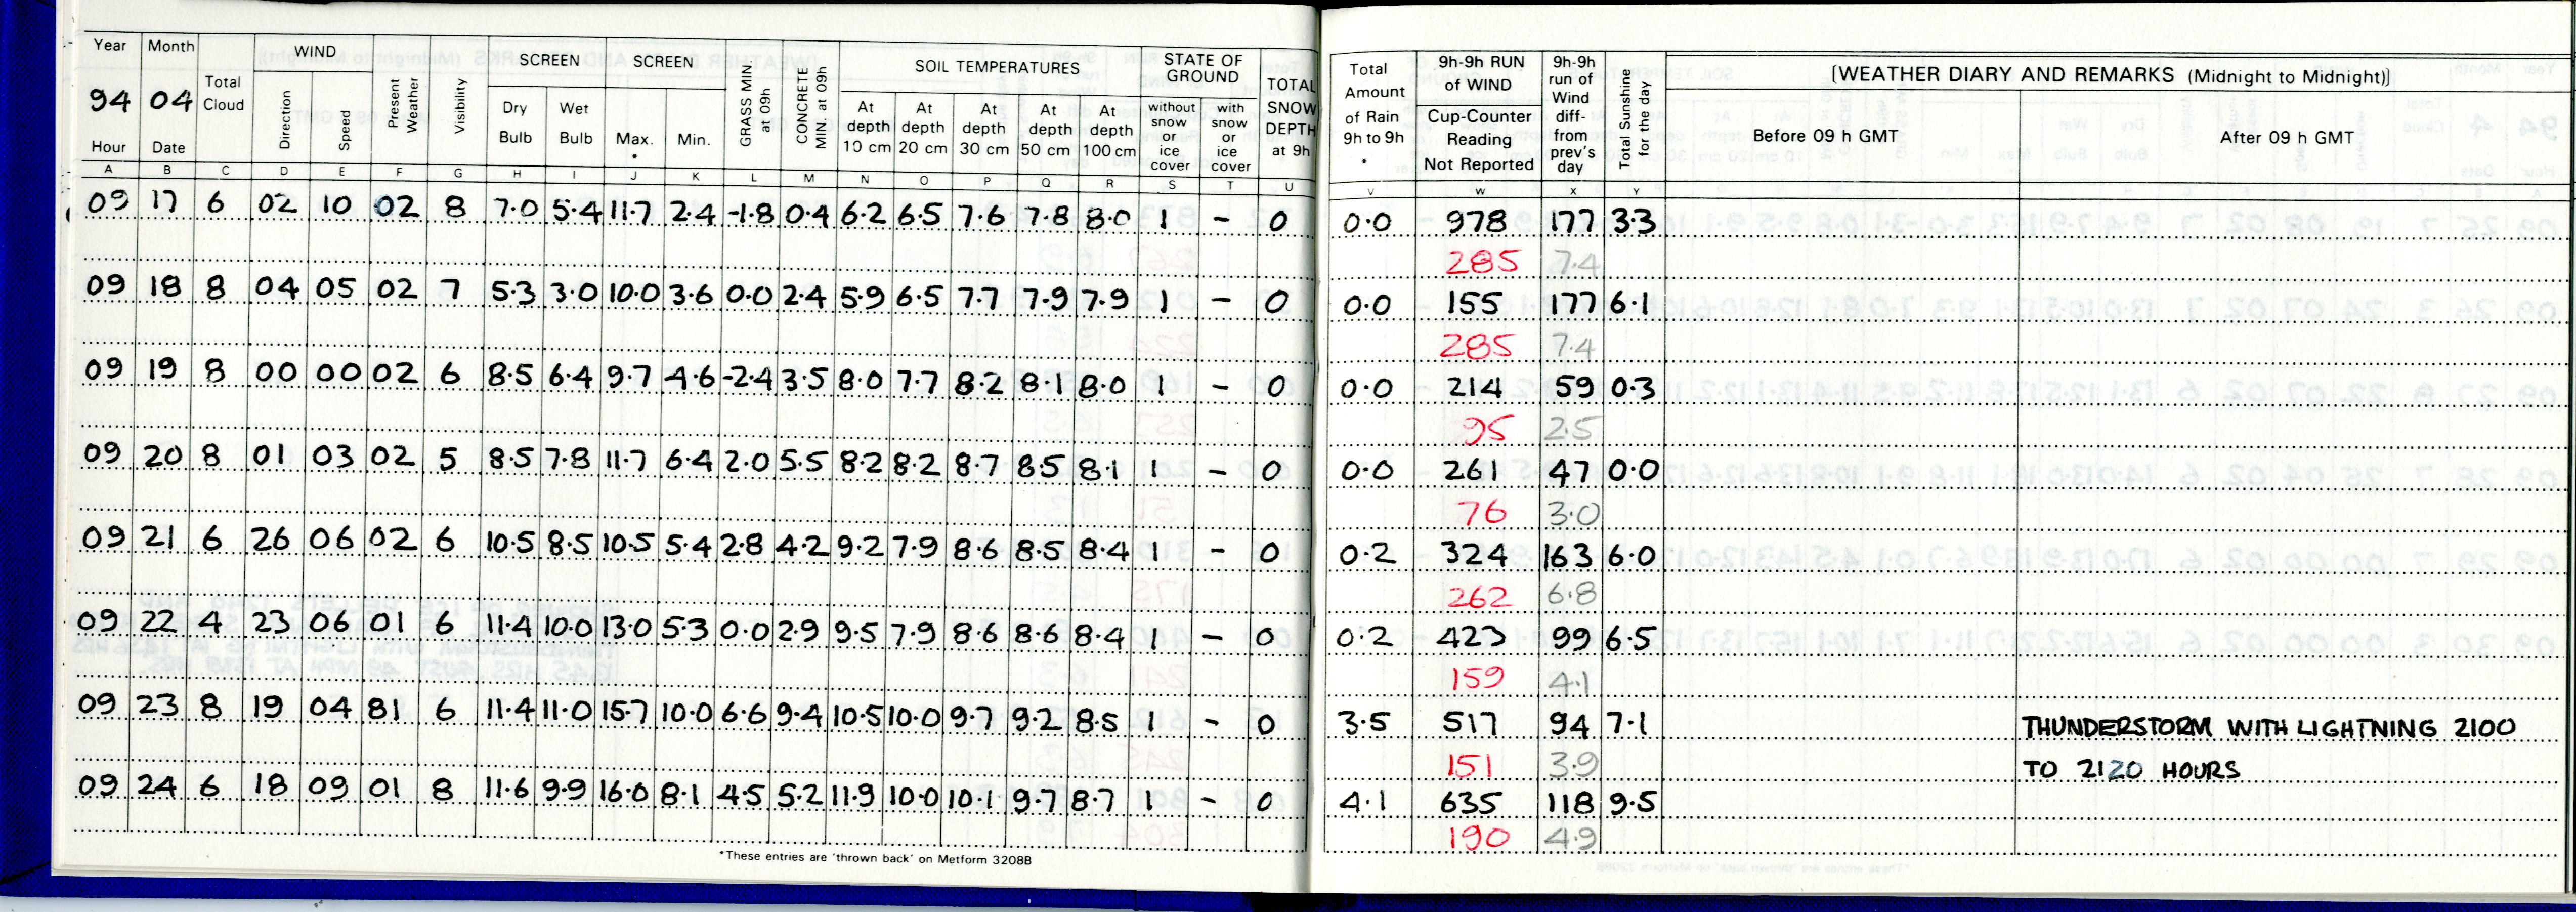 Year Month WIND SCREEN SCREEN SOIL TEMPERATURES STATE OF GROUND TOTAL SNOW DEPTH at 9h Total Amount of Rain 9h to 9h * 9h-9h RUN of WIND Cup-Counter Reading Not Reported 9h-9h run of Wind diff- from prev's day Total Sunshine for the day [WEATHER DIARY AND REMARKS (Midnight to Midnight)]
94 04 Total Cloud Direction Speed Present Weather Visibility Dry Bulb Wet Bulb Max. * Min. GRASS MIN at 09h CONCRETE MIN. at 09h At depth 10 cm At depth 20 cm At depth 30 cm At depth 50 cm At depth 100 cm without snow or ice cover with snow or ice cover Before 09 h GMT After 09 h GMT
Hour Date
A B C D E F G H I J K L M N O P Q R S T U V W X Y
09 17 6 02 10 02 8 7.0 5.4 11.7 2.4 -1.8 0.4 6.2 6.5 7.6 7.8 8.0 1 – 0 0.0 978 177 3.3
285 7.4
09 18 8 04 05 02 7 5.3 3.0 10.0 3.6 0.0 2.4 5.9 6.5 7.7 7.9 7.9 1 – 0 0.0 155 177 6.1
285 7.4
09 19 8 00 00 02 6 8.5 6.4 9.7 4.6 -2.4 3.5 8.0 7.7 8.2 8.1 8.0 1 – 0 0.0 214 59 0.3
95 2.5
09 20 8 01 03 02 5 8.5 7.8 11.7 6.4 2.0 5.5 8.2 8.2 8.7 8.5 8.1 1 – 0 0.0 261 47 0.0
76 3.0
09 21 6 26 06 02 6 10.5 8.5 10.5 5.4 2.8 4.2 9.2 7.9 8.6 8.5 8.4 1 – 0 0.2 324 163 6.0
262 6.8
09 22 4 23 06 01 6 11.4 10.0 13.0 5.3 0.0 2.9 9.5 7.9 8.6 8.6 8.4 1 – 0 0.2 423 99 6.5
159 4.1
09 23 8 19 04 81 6 11.4 11.0 15.7 10.0 6.6 9.4 10.5 10.0 9.7 9.2 8.5 1 – 0 3.5 517 94 7.1 THUNDERSTORM WITH LIGHTNING 2100
151 3.9 TO 2120 HOURS
09 24 6 18 09 01 8 11.6 9.9 16.0 8.1 4.5 5.2 11.9 10.0 10.1 9.7 8.7 1 – 0 4.1 635 118 9.5
190 4.9
*These entries are 'thrown back' on Metform 3208B